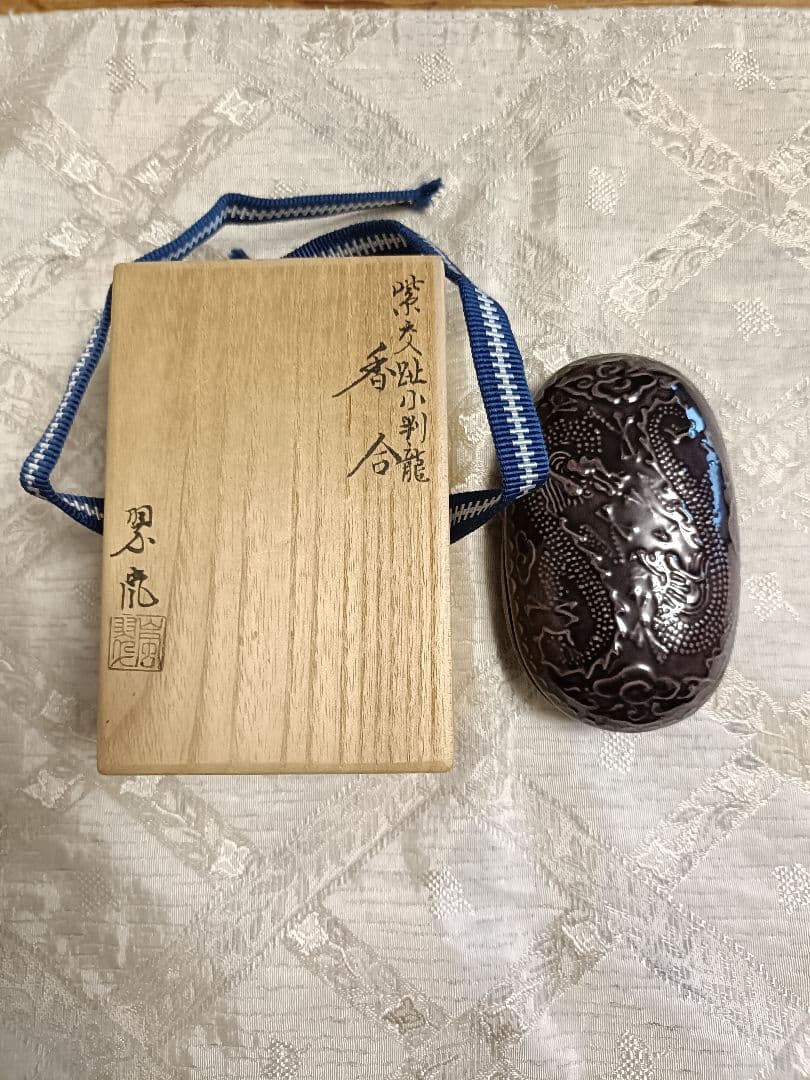 紫交趾小判龍
香合
翠嵐